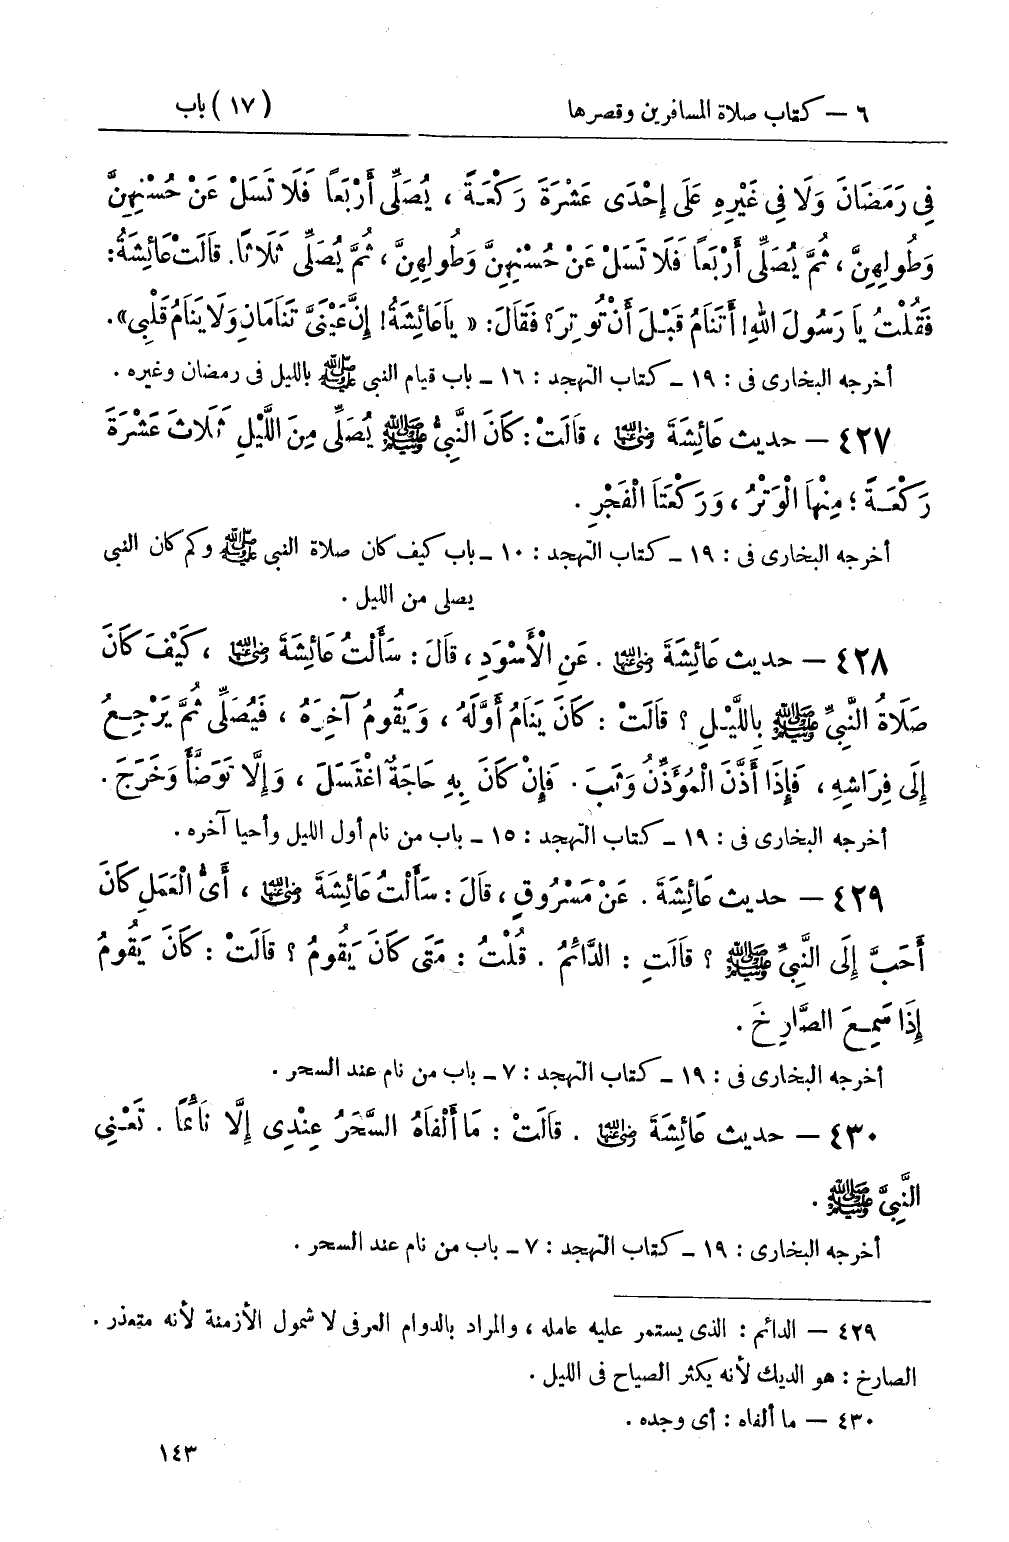 ٦ — كتاب صلاة المسافرين وقصرها (١٧) باب
فِى رَمَضَانَ وَلَا فِى غَيْرِهِ عَلَى إِحْدَى عَشْرَةَ رَكْعَةً ، يُصَلِّى أَرْبَعًا فَلَا تَسَلْ عَنْ حُسْنِهِنَّ
وَطُولِهِنَّ ، ثُمَّ يُصَلِّى أَرْبَعًا فَلَا تَسَلْ عَنْ حُسْنِهِنَّ وَطُولِهِنَّ ، ثُمَّ يُصَلِّى ثَلَاثًا. قَالَتْ عَائِشَةُ :
فَقُلْتُ يَا رَسُولَ اللهِ! أَتَنَامُ قَبْلَ أَنْ تُوتِرَ؟ فَقَالَ: « يَا عَائِشَةُ! إِنَّ عَيْنَىَّ تَنَامَانِ وَلَا يَنَامُ قَلْبِى».
أخرجه البخارى فى : ١٩ ـ كتاب التهجد : ١٦ ـ باب قيام النبى ﷺ بالليل فى رمضان وغيره .
٤٢٧ — حديث عَائِشَةَ رضي الله عنها ، قَالَتْ : كَانَ النَّبِىُّ ﷺ يُصَلِّى مِنَ اللَّيْلِ ثَلَاثَ عَشْرَةَ
رَكْعَةً ؛ مِنْهَا الْوَتْرُ ، وَرَكْعَتَا الْفَجْرِ .
أخرجه البخارى فى : ١٩ ـ كتاب التهجد : ١٠ ـ باب كيف كان صلاة النبى ﷺ وكم كان النبى
يصلى من الليل .
٤٢٨ — حديث عَائِشَةَ رضي الله عنها . عَنِ الْأَسْوَدِ ، قَالَ : سَأَلْتُ عَائِشَةَ رضي الله عنها ، كَيْفَ كَانَ
صَلَاةُ النَّبِىِّ ﷺ بِاللَّيْلِ ؟ قَالَتْ : كَانَ يَنَامُ أَوَّلَهُ ، وَيَقُومُ آخِرَهُ ، فَيُصَلِّى ثُمَّ يَرْجِعُ
إِلَى فِرَاشِهِ ، فَإِذَا أَذَّنَ الْمُؤَذِّنُ وَثَبَ . فَإِنْ كَانَ بِهِ حَاجَةٌ اغْتَسَلَ ، وَإِلَّا تَوَضَّأَ وَخَرَجَ .
أخرجه البخارى فى : ١٩ ـ كتاب التهجد : ١٥ ـ باب من نام أول الليل وأحيا آخره .
٤٢٩ — حديث عَائِشَةَ . عَنْ مَسْرُوقٍ ، قَالَ : سَأَلْتُ عَائِشَةَ رضي الله عنها ، أَىُّ الْعَمَلِ كَانَ
أَحَبَّ إِلَى النَّبِىِّ ﷺ ؟ قَالَتِ : الدَّائِمُ . قُلْتُ : مَتَى كَانَ يَقُومُ ؟ قَالَتْ : كَانَ يَقُومُ
إِذَا سَمِعَ الصَّارِخَ .
أخرجه البخارى فى : ١٩ ـ كتاب التهجد : ٧ ـ باب من نام عند السحر .
٤٣٠ — حديث عَائِشَةَ رضي الله عنها . قَالَتْ : مَا أَلْفَاهُ السَّحَرُ عِنْدِى إِلَّا نَائِمًا . تَعْنِى
النَّبِىَّ ﷺ .
أخرجه البخارى : ١٩ ـ كتاب التهجد : ٧ ـ باب من نام عند السحر .
٤٢٩ — الدائم : الذى يستمر عليه عامله ، والمراد بالدوام العرفى لا شمول الأزمنة لأنه متعذر .
الصارخ : هو الديك لأنه يكثر الصياح فى الليل .
٤٣٠ — ما ألفاه : أى وجده .
١٤٣